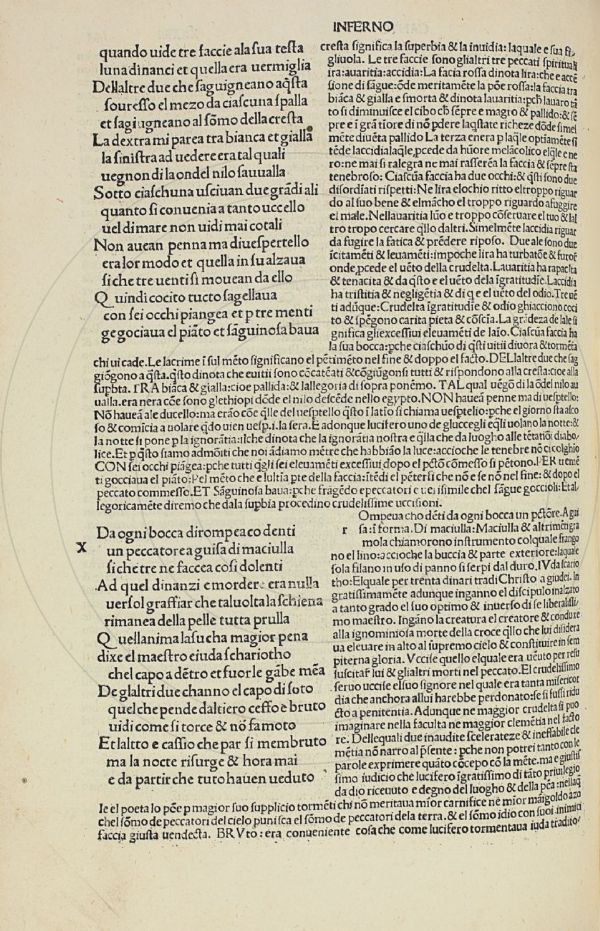 INFERNO
quando uide tre faccie ala sua testa
luna dinanci et quella era uermiglia
Dellaltre due che saguigneano aq̃sta
souresso el mezo da ciascuna spalla
et sagiugneano al sõmo della cresta
La dextra mi parea tra bianca et gialla
la sinistra ad uedere era tal quali
uegnon di la ondel nilo sauualla
Sotto ciaschuna usciuan due grãdi ali
quanto si conuenia a tanto uccello
uel di mare non uidi mai cotali
Non auean penna ma di uespertello
era lor modo et quella in su alzaua
si che tre uenti si mouean da ello
Quindi cocito tucto sagellaua
con sei occhi piangea et p tre menti
gegociaua el piãto et sãguinosa baua
cresta significa la superbia & la inuidia: laquale e sua fi
gliuola. Le tre faccie sono gli altri tre peccati spirituali
ira: auaritia: accidia: La facia rossa dinota lira: che e accẽ
sione di sague: õde meritamẽte la põe rossa: la faccia tra
biãca & gialla e smorta & dinota lauaritia: pch lauaro tã
to si diminuisce el cibo ch̃ sẽpre e magro & pallido: & sẽ
pre e i grã tiore di nõ pdere laq̃state richeze dõde simel
mẽte diuẽta pallido La terza enera p laq̃le optiamẽte si
tẽde laccidia laq̃le, pcede da hũore melãcolico elq̃le e ne
ro: ne mai si ralegra ne mai rasserẽa la faccia & sẽpre sta
tenebroso: Ciascũa faccia ha due occhi: & q̃sti sono due
disordiati rispetti: Ne lira elochio ritto eltroppo riguar
do al suo bene & elmãcho el troppo riguardo a fuggire
el male. Nellauaritia lũo e troppo cõseruare el tuo & lal
tro tropo cercare q̃llo daltri. Simelmẽte laccidia riguar
da fugire la fatica & prẽdere riposo. Due ale sono due
icitamẽti & leuamẽti: impoche lira ha turbatõe & furoẽ
onde, pcede el uẽto della crudelta. Lauaritia ha rapacita
& tenacita & da q̃sto e el uẽto de la igratitudie. Laccidia
ha tristitia & negligẽtia & di q e el uẽto del odio. Tre uẽ
ti adũque: Crudelta igratitudie & odio ghiacciono coci
to & spẽgono carita pieta & cõscia. La grãdeza de lale si
gnifica gli excessiui eleuamẽti de laio. Ciascũa faccia ha
la sua bocca: pche ciaschũo di q̃sti uitii diuora & tormẽta
chi ui cade. Le lacrime i sul mẽto significano el pẽtimẽto nel fine & doppo el facto. DELlaltre due che sag
giõgono a q̃sta. q̃sto dinota che e uitii sono cõcatẽati & cõgiũgonsi tutti & rispondono alla cresta: cioe alla
supbta. TRA biãca & gialla: cioe pallida: & lallegoria di sopra ponẽmo. TAL qual uẽgõ di la õdel nilo au
ualla. era nera cõe sono gl'ethiopi dõde el nilo descẽde nello egypto. NON haueã penne ma di uespertello:
Nõ haueã ale ducello: ma erão cõe q̃lle del uesptello q̃sto i latio si chiama uesptelio: pche el giorno sta asco
so & comicia a uolare qdo uien uesp.i.la sera. E adonque lucifero uno de gluccegli eq̃li uolano la notte: &
la notte si pone p la ignoratia: ilche dinota che la ignoratia nostra e q̃lla che da luogho alle tẽtatiõi diabo
lice. Et p q̃sto siamo admoiti che noi adiamo mẽtre che habbião la luce: accioche le tenebre nõ ci colghio
CON sei occhi piãgea: pche tutti q̃gli sei eleuamẽti excessiui dopo el pctõ cõmesso si pẽtono. PER tre mẽ
ti gocciaua el piãto: Pel mẽto che e lultia pte della faccia: stẽdi el pẽtersi che nõ e se nõ nel fine: & dopo el
peccato commesso. ET Sãguinosa baua: pche fragẽdo e peccatori e ue, isimile chel sãgue goccioli: Et al
legoricamẽte diremo che dala supbia procedino crudelissime uccisioni.
X
Da ogni bocca dirompea co denti
un peccatore a guisa di maciulla
si che tre ne faccea cosi dolenti
Ad quel dinanzi e mordere era nulla
uersol graffiar che taluolta la schiena
rimanea della pelle tutta prulla
Quellanima lasu cha magior pena
dixe el maestro e iuda schariotho
chel capo a dẽtro et fuor le gãbe mẽa
De glaltri due channo el capo di soto
quel che pende dal tiero ceffo e bruto
uidi como si torce & nõ fa moto
Et laltro e cassio che par si membruto
ma la nocte risurge & hora mai
e da partir che tuto hauen ueduto
r
Ompeua cho dẽti da ogni bocca un pctõre. A gui
sa: i forma. Di maciulla: Maciulla & altrimẽti gra
mola chiamorono instrumento colquale frango
no el lino: accioche la buccia & parte exteriore: laquale
sola filano in uso di panno si serpi dal duro. IVda scario
tho: Elquale per trenta dinari tradi Christo a giudei. In
gratissimamẽte adunque inganno el discipulo inalzato
a tanto grado el suo optimo & inuerso di se liberalissi
mo maestro. Ingãno la creatura el creatore & condure
alla ignominiosa morte della croce q̃llo che lui disidera
ua eleuare in alto al supremo cielo & constituire in sem
piterna gloria. Vccise quello elquale era uẽuto per resu
suscitar lui & glialtri morti nel peccato. El crudelissimo
seruo uccise el suo signore nel quale era tanta misericor
dia che anchora allui harebbe perdonato se si fussi ridu
cto a penitentia. Adunque ne maggior crudelta si puo
imaginare nella faculta ne maggior clemẽtia nel facto
re. Delle quali due inaudite scelerateze & ineffabile cle
mẽtia nõ narro al p̃sente: pche non potrei tanto con le
parole exprimere quãto cõcepo cõ la mẽte. ma e giustis
simo iudicio che lucifero igratissimo di tãto priuilegio
da dio riceuuto e degno del luogho & della pẽa: nellaq̃
le el poeta lo põe p magior suo supplicio tormẽti chi nõ meritaua mior carnifice ne mior maigoldo azo
chel sõmo de peccatori del cielo punisca el sõmo de peccatori dela terra. & el sõmo idio con suoi inimici
faccia giusta uendecta. BRVto: era conueniente cosa che come lucifero tormentaua iuda tradito